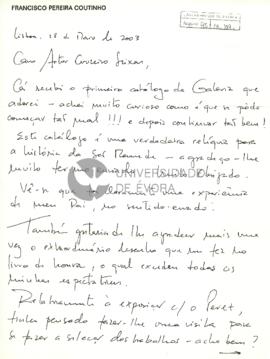 FRANCISCO PEREIRA COUTINHO
Lisboa, 18 de Maio de 2003
Caro Artur Cruzeiro Seixas,
Cá recebi o primeiro catálogo da Galeria que
adorei - achei muito curioso como é que se pode
começar tão mal!!! e depois continuar tão bem!
Este catálogo é uma verdadeira relíquia para
a história da São Mamede - agradeço-lhe
muito ter-me
Obrigado.
Vê-se que foi uma experiência
do meu Pai, no sentido errado.
UNIVERSIDADE
DE ÉVORA
Também gostaria de lhe agradecer mais uma
vez o extraordinário desenho que me fez no
livro de honra, o qual excedeu todas as
minhas expectativas.
Relativamente à exposição c/o Peret,
tinha pensado fazer-lhe uma visita para
se fazer a selecção dos trabalhos - acha bem?